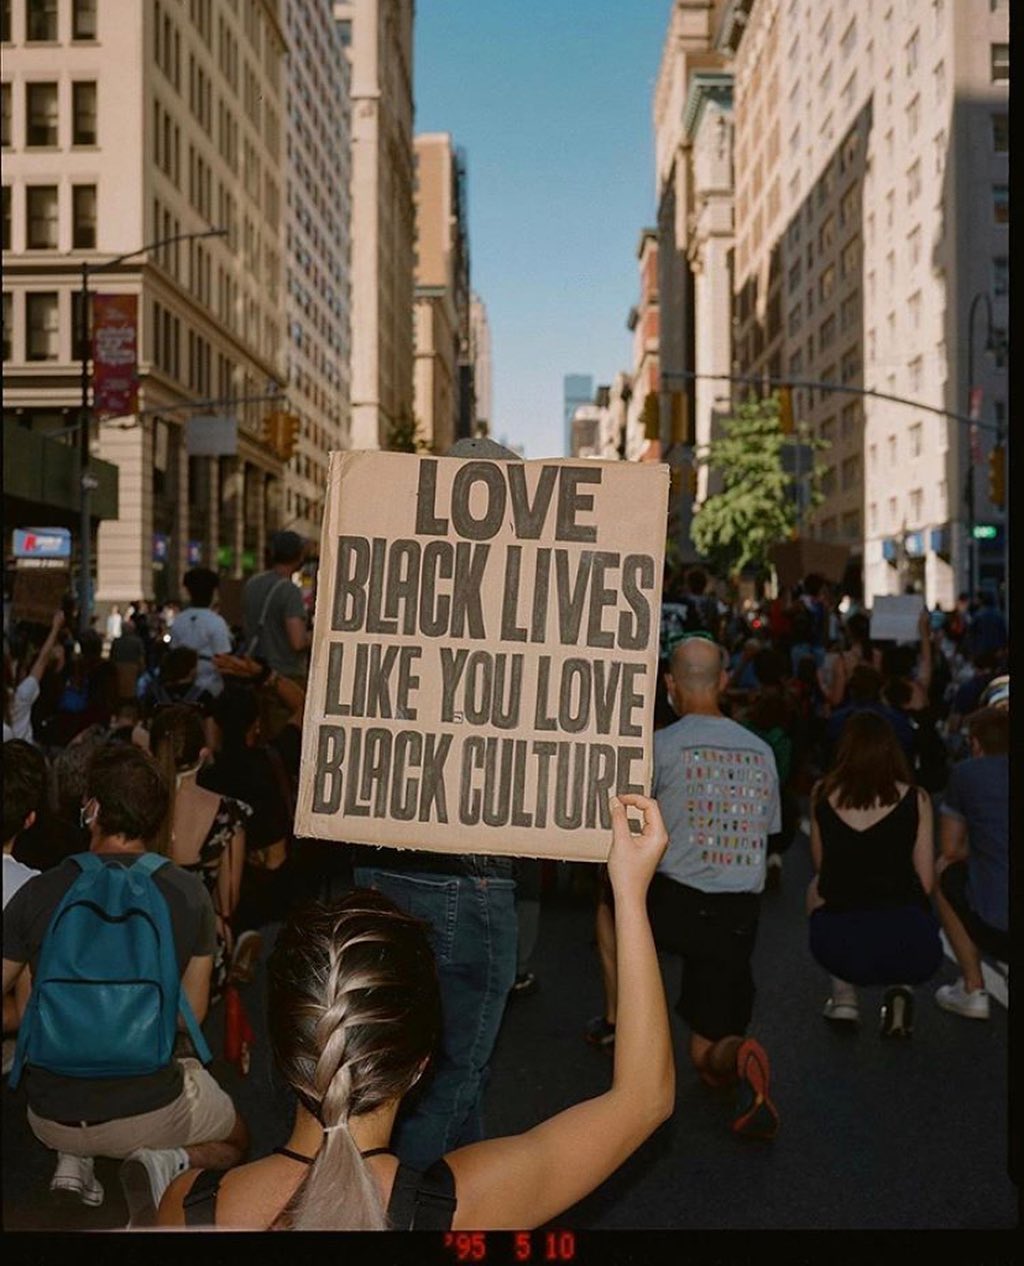 LOVE
BLACK LIVES
LIKE YOU LOVE
BLACK CULTURE
'95 5 10